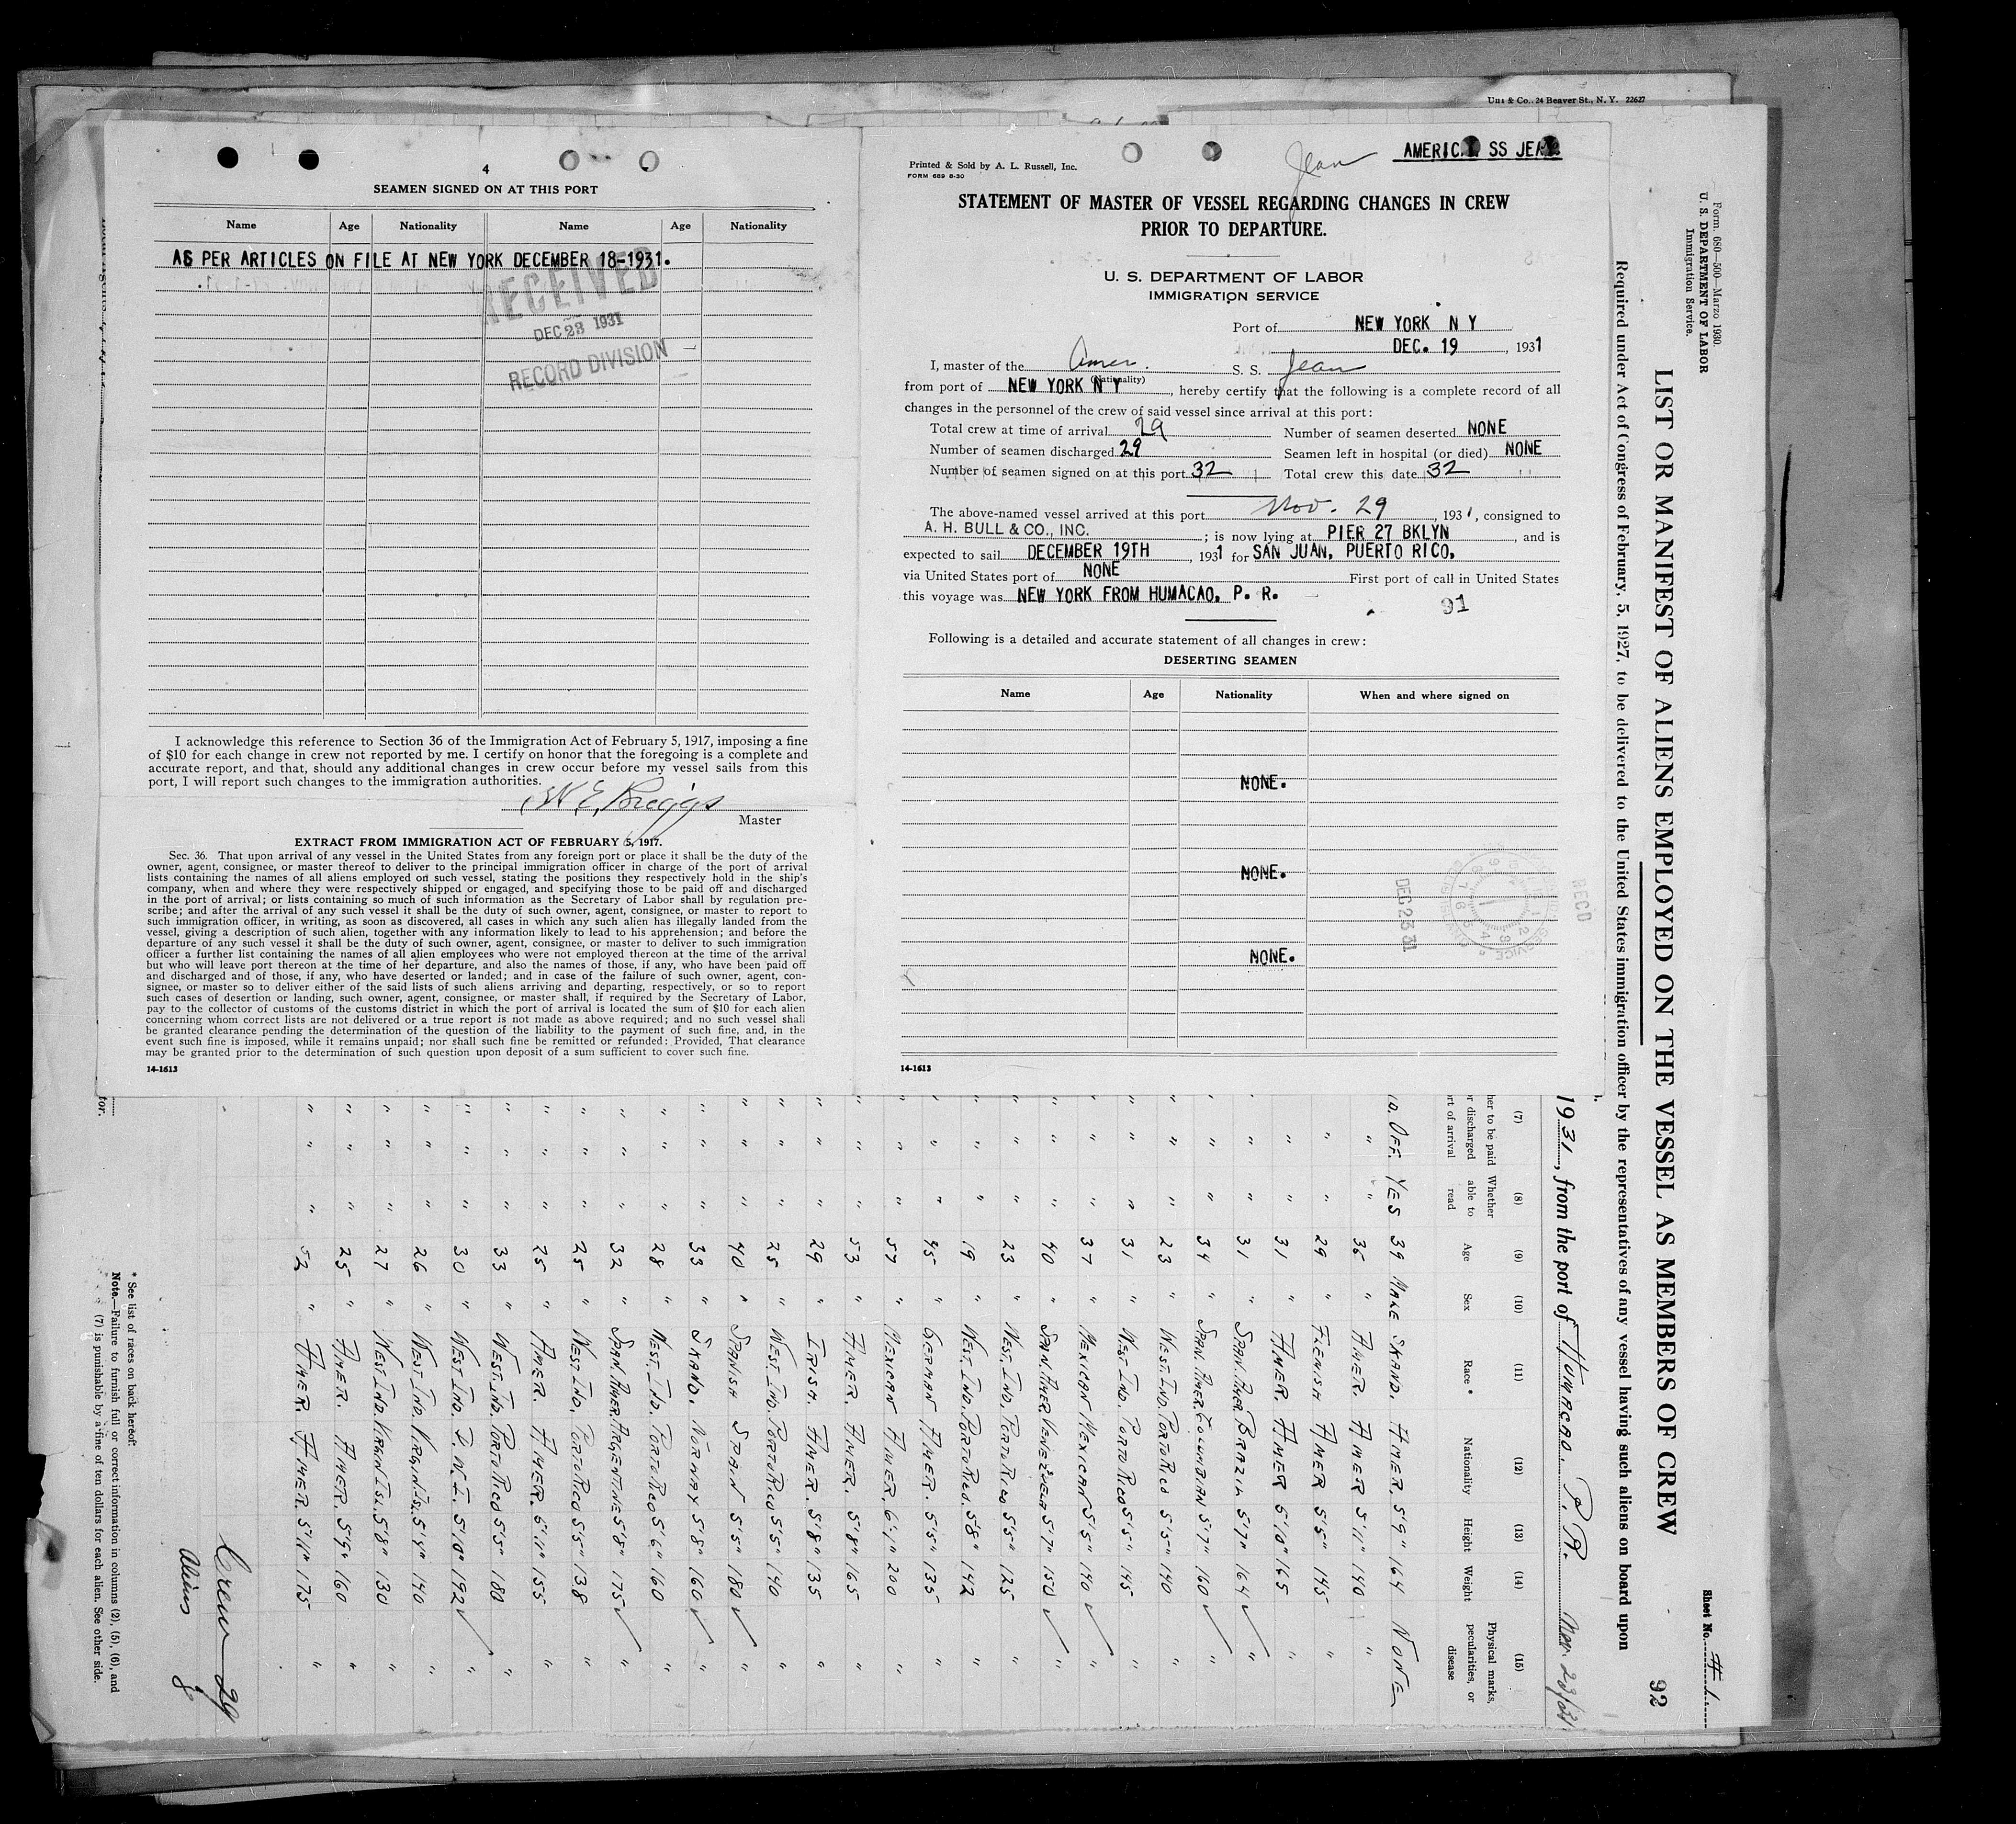 Co., 24 Beaver St., N. Y. 22627
4
SEAMEN SIGNED ON AT THIS PORT
Name Age Nationality Name Age Nationality
AS PER ARTICLES ON FILE AT NEW YORK DECEMBER 18-1931.
RECEIVED
DEC 23 1931
RECORD DIVISION
I acknowledge this reference to Section 36 of the Immigration Act of February 5, 1917, imposing a fine
of $10 for each change in crew not reported by me. I certify on honor that the foregoing is a complete and
accurate report, and that, should any additional changes in crew occur before my vessel sails from this
port, I will report such changes to the immigration authorities.
W. E. Breggs
Master
EXTRACT FROM IMMIGRATION ACT OF FEBRUARY 5, 1917.
Sec. 36. That upon arrival of any vessel in the United States from any foreign port or place it shall be the duty of the
owner, agent, consignee, or master thereof to deliver to the principal immigration officer in charge of the port of arrival
lists containing the names of all aliens employed on such vessel, stating the positions they respectively hold in the ship's
company, when and where they were respectively shipped or engaged, and specifying those to be paid off and discharged
in the port of arrival; or lists containing so much of such information as the Secretary of Labor shall by regulation pre-
scribe; and after the arrival of any such vessel it shall be the duty of such owner, agent, consignee, or master to report to
such immigration officer, in writing, as soon as discovered, all cases in which any such alien has illegally landed from the
vessel, giving a description of such alien, together with any information likely to lead to his apprehension; and before the
departure of any such vessel it shall be the duty of such owner, agent, consignee, or master to deliver to such immigration
officer a further list containing the names of all alien employees who were not employed thereon at the time of the arrival
but who will leave port thereon at the time of her departure, and also the names of those, if any, who have been paid off
and discharged and of those, if any, who have deserted or landed; and in case of the failure of such owner, agent, con-
signee, or master so to deliver either of the said lists of such aliens arriving and departing, respectively, or so to report
such cases of desertion or landing, such owner, agent, consignee, or master shall, if required by the Secretary of Labor,
pay to the collector of customs of the customs district in which the port of arrival is located the sum of $10 for each alien
concerning whom correct lists are not delivered or a true report is not made as above required; and no such vessel shall
be granted clearance pending the determination of the question of the liability to the payment of such fine, and, in the
event such fine is imposed, while it remains unpaid; nor shall such fine be remitted or refunded: Provided, That clearance
may be granted prior to the determination of such question upon deposit of a sum sufficient to cover such fine.
14-1613
Printed & Sold by A. L. Russell, Inc.
FORM 689 8-30
Jean
AMERICAN SS JEAN
STATEMENT OF MASTER OF VESSEL REGARDING CHANGES IN CREW
PRIOR TO DEPARTURE.
U. S. DEPARTMENT OF LABOR
IMMIGRATION SERVICE
Port of NEW YORK N Y
DEC. 19, 1931
I, master of the Amer. S. S. Jean
(Nationality)
from port of NEW YORK N Y, hereby certify that the following is a complete record of all
changes in the personnel of the crew of said vessel since arrival at this port:
Total crew at time of arrival 29 Number of seamen deserted NONE
Number of seamen discharged 29 Seamen left in hospital (or died) NONE
Number of seamen signed on at this port 32 Total crew this date 32
The above-named vessel arrived at this port Nov. 29, 1931, consigned to
A. H. BULL & CO., INC.; is now lying at PIER 27 BKLYN, and is
expected to sail DECEMBER 19TH, 1931 for SAN JUAN, PUERTO RICO,
via United States port of NONE First port of call in United States
this voyage was NEW YORK FROM HUMACAO, P. R.
91
Following is a detailed and accurate statement of all changes in crew:
DESERTING SEAMEN
Name Age Nationality When and where signed on
NONE.
NONE.
NONE.
DEC 23 31
RECD
14-1613
Form 680—500—Marzo 1930.
U. S. DEPARTMENT OF LABOR
Immigration Service.
Sheet No. # 1
LIST OR MANIFEST OF ALIENS EMPLOYED ON THE VESSEL AS MEMBERS OF CREW
92
Required under Act of Congress of February, 5, 1927, to be delivered to the United States immigration officer by the representatives of any vessel having such aliens on board upon
1931, from the port of Humacao. P. R. Nov. 23/31
(7) (8) (9) (10) (11) (12) (13) (14) (15)
her to be paid Whether Age Sex Race * Nationality Height Weight Physical marks,
r discharged able to peculiarities, or
rt of arrival read disease
D. OFF. YES 39 MALE SKAND. AMER. 5'9" 164 NONE
" " 36 " AMER. AMER 5'11" 140 "
" " 29 " FLENISH AMER 5'5" 145 "
" " 31 " AMER. AMER 5'10" 165 "
" " 31 " SPAN. AMER BRAZIL 5'7" 164 ✓ "
" " 34 " SPAN. AMER. COLUMBIAN 5'7" 160 ✓ "
" " 23 " WEST. IND. PORTO RICO 5'5" 140 "
" " 31 " WEST IND. PORTO RICO 5'5" 145 "
" " 37 " MEXICAN MEXICAN 5'5" 140 ✓ "
" " 40 " SPAN. AMER VENEZUELA 5'7" 150 ✓ "
" " 23 " WEST. IND. PORTO RICO 5'5" 125 "
" " 19 " WEST. IND. PORTO RICO. 5'8" 142 "
" " 45 " GERMAN AMER. 5'5" 135 "
" " 57 " MEXICAN AMER. 6'1" 200 "
" " 53 " AMER. AMER. 5'8" 165 "
" " 29 " IRISH. AMER. 5'8" 135 "
" " 25 " WEST. IND. PORTO RICO 5'5" 140 "
" " 40 " SPANISH SPAIN 5'5" 180 ✓ "
" " 33 " SKAND. NORWAY 5'8" 160 ✓ "
" " 28 " WEST. IND. PORTO RICO 5'6" 160 "
" " 32 " SPAN. AMER. ARGENTINE 5'8" 175 ✓ "
" " 25 " WEST IND. PORTO RICO 5'5" 138 "
" " 25 " AMER. AMER. 6'1" 155 "
" " 33 " WEST. IND. PORTO RICO 5'5" 180 "
" " 30 " WEST IND. D. W. I. 5'10" 192 ✓ "
" " 26 " WEST IND. VIRGIN. ISL. 5'4" 140 "
" " 27 " WEST IND. VIRGIN ISL. 5'8" 130 "
" " 25 " AMER. AMER. 5'9" 160 "
" " 52 " AMER. AMER 5'11" 175 "
Crew 29
Aliens 8
* See list of races on back hereof.
Note.—Failure to furnish full or correct information in columns (2), (5), (6), and
(7) is punishable by a fine of ten dollars for each alien. See other side.
for.